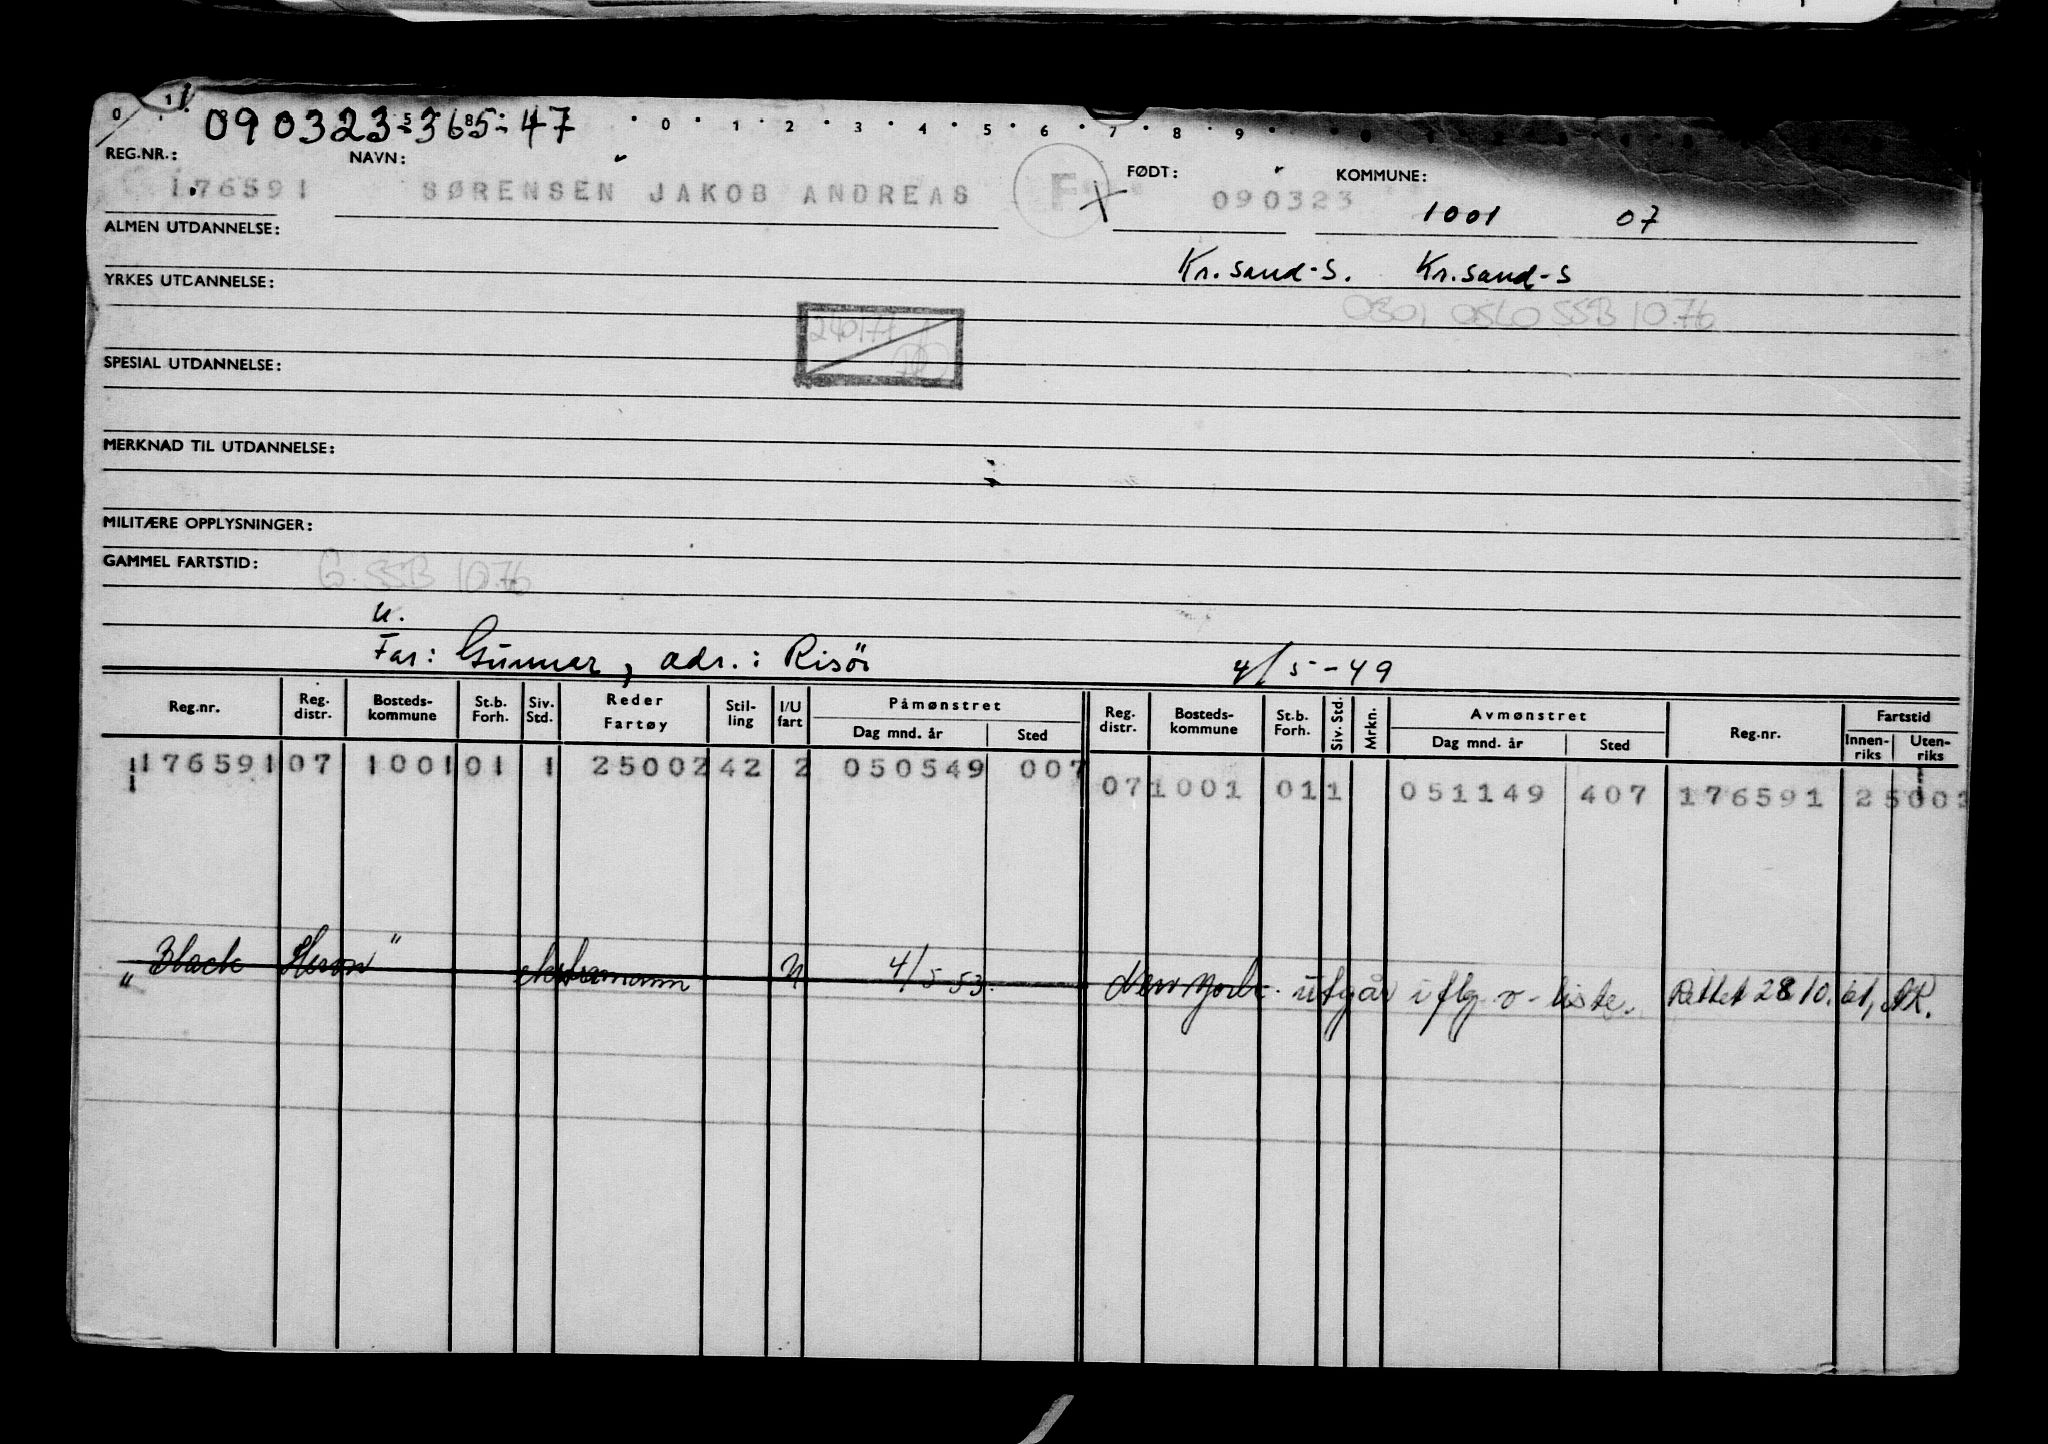 0 1
090323-36547
0 1 2 3 4 5 6 7 8 9
REG.NR.: NAVN: FØDT: KOMMUNE:
176591 SØRENSEN JAKOB ANDREAS F 090323 1001 07
ALMEN UTDANNELSE:
Kr.sand-S. Kr.sand-S
YRKES UTDANNELSE:
0301 OSLO SSB 10.76
SPESIAL UTDANNELSE:
MERKNAD TIL UTDANNELSE:
MILITÆRE OPPLYSNINGER:
GAMMEL FARTSTID: G. SSB 10.76
u.
Far: Gunnar, adr.: Risör 4/5-49
Reg.nr. Reg. distr. Bosteds-kommune St.b. Forh. Siv. Std. Reder Fartøy Stil-ling I/U fart Påmønstret Dag mnd. år Sted Reg. distr. Bosteds-kommune St.b. Forh. Siv. Std. Mrkn. Avmønstret Dag mnd. år Sted Reg.nr. Fartstid Innen-riks Uten-riks
176591 07 1001 01 1 25002 42 2 050549 007
07 1001 01 1 051149 407 176591 25002
"Black Heron" ekstramann U 4/5 53. New York. utgår iflg. v-liste. Rettet 28 10. 61,